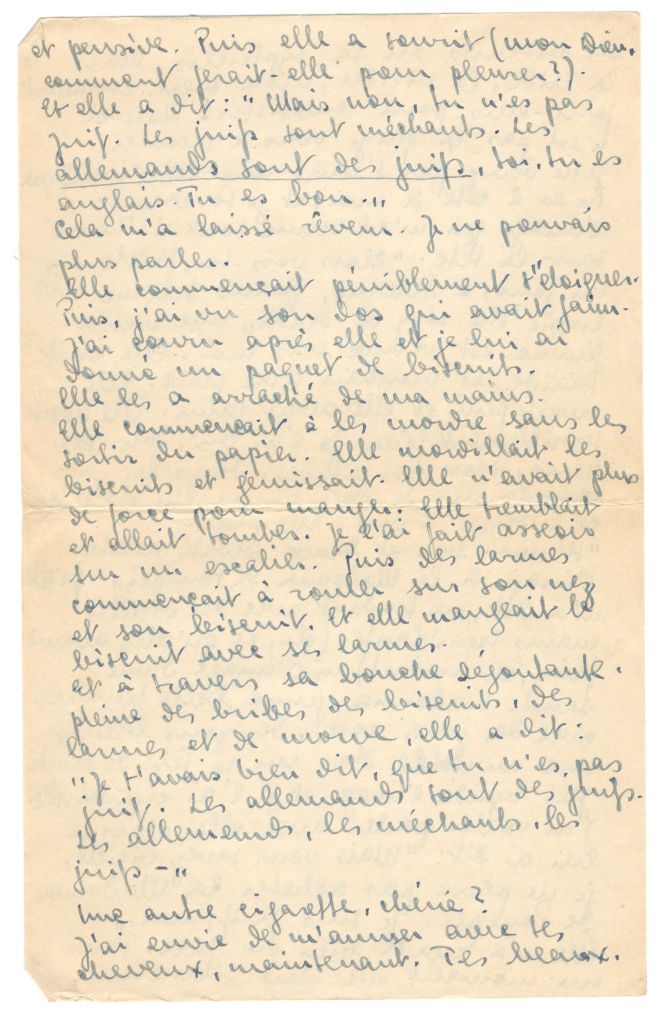 et pensive. Puis elle a sourit (mon Dieu,
comment ferait-elle pour pleurer?).
Et elle a dit: "Mais non, tu n'es pas
juif. Les juifs sont méchants. Les
allemands sont des juifs, toi, tu es
anglais. Tu es bon.„
Cela m'a laissé rêveur. Je ne pouvais
plus parler.
Elle commençait péniblement s'éloigner.
Puis, j'ai vu son dos qui avait faim.
J'ai couru après elle et je lui ai
donné un paquet de biscuits.
Elle les a arraché de ma mains.
Elle commençait à les mordre sans les
sortir du papier. Elle mordillait les
biscuits et gémissait. Elle n'avait plus
de force pour manger. Elle tremblait
et allait tomber. Je l'ai fait asseoir
sur un escalier. Puis des larmes
commençait à rouler sur son nez
et son biscuit. Et elle mangeait le
biscuit avec ses larmes.
Et à travers sa bouche dégoutante.
pleine des bribes des biscuits, des
larmes et de morve, elle a dit:
"Je t'avais bien dit, que tu n'es pas
juif. Les allemands sont des juifs.
Les allemands, les méchants, les
juifs —"
Une autre cigarette, chérie?
J'ai envie de m'amuser avec tes
cheveux, maintenant. Tes beaux.